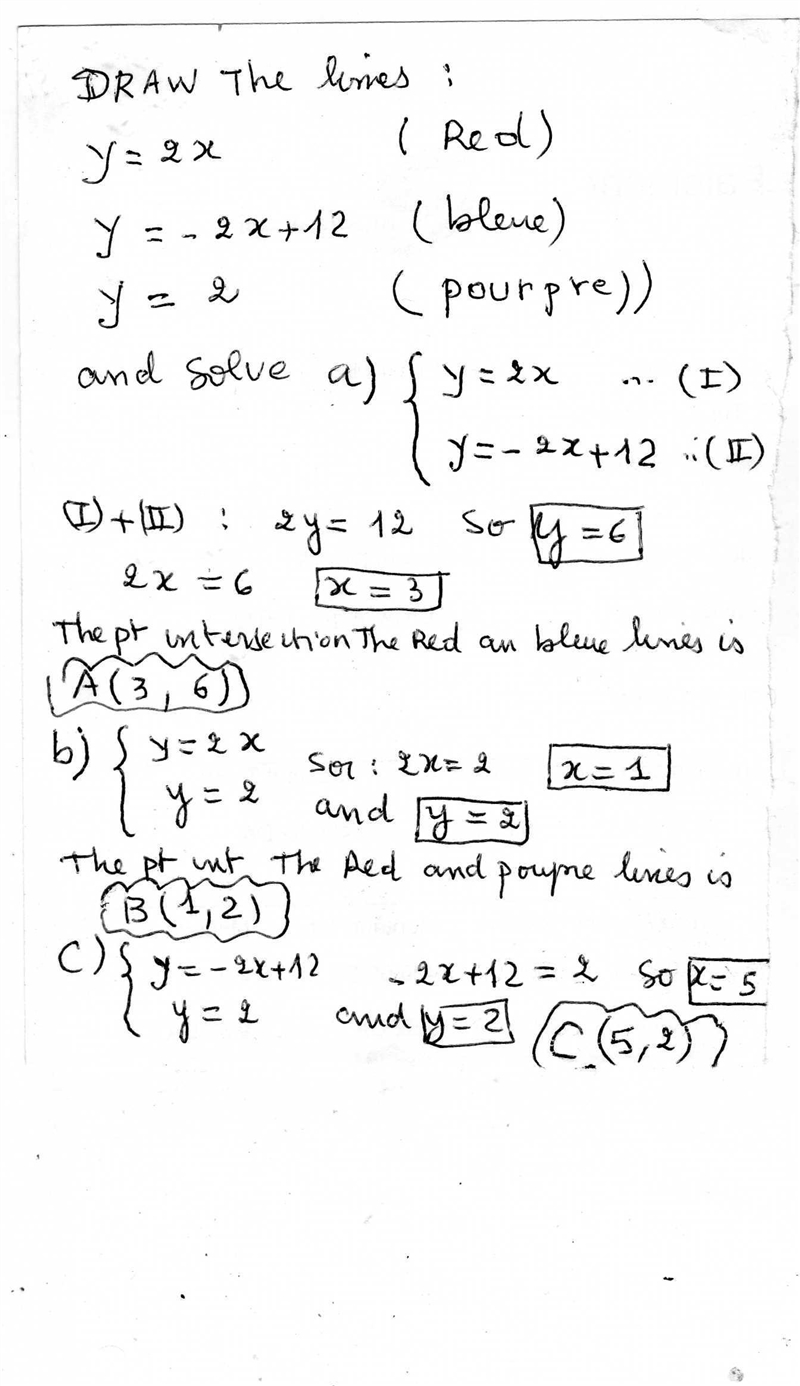 DRAW The lines :
y = 2x (Red)
y = - 2x+12 (bleue)
y = 2 (pourpre))
and solve a) { y = 2x ... (I)
y = - 2x+12 ..(II)
(I)+(II) : 2y = 12 so y = 6
2x = 6 x = 3
The pt intersection The Red an bleue lines is
A(3, 6)
b) { y = 2x Sor : 2x = 2 x = 1
y = 2 and y = 2
The pt int The Red and poupre lines is
B(1,2)
C) { y = -2x+12 -2x+12 = 2 so x = 5
y = 2 and y = 2 C(5,2)